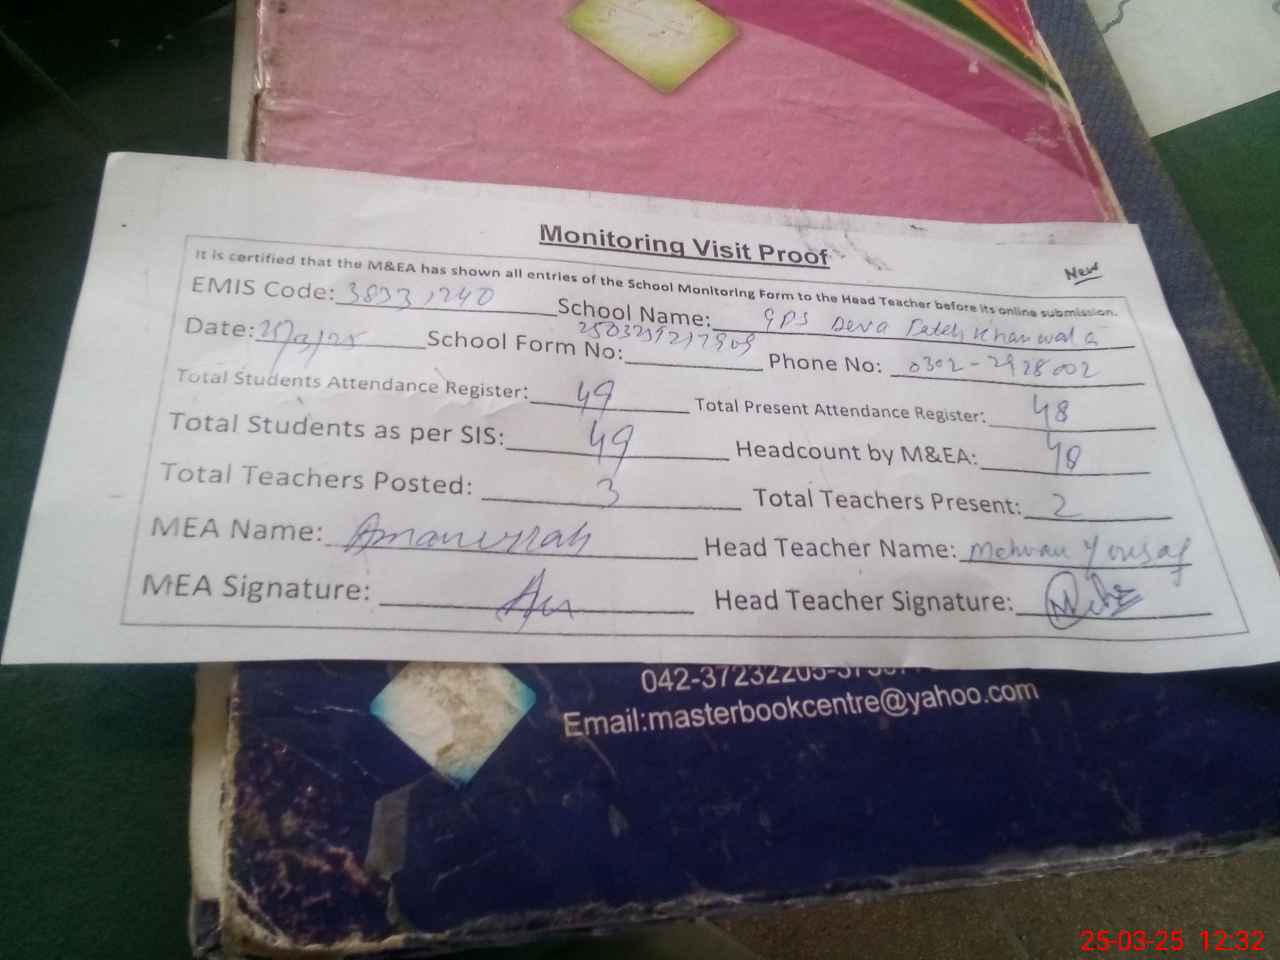 Monitoring Visit Proof
New
It is certified that the M&EA has shown all entries of the School Monitoring Form to the Head Teacher before its online submission.
EMIS Code: School Name: GPS Deva Fateh Khan wala
Date: 25/3/25 School Form No: Phone No: 0302-2928002
Total Students Attendance Register: 49 Total Present Attendance Register: 48
Total Students as per SIS: 49 Headcount by M&EA: 48
Total Teachers Posted: 3 Total Teachers Present: 2
MEA Name: Head Teacher Name: Yousaf
MEA Signature: Head Teacher Signature:
Email:masterbookcentre@yahoo.com
25-03-25 12:32